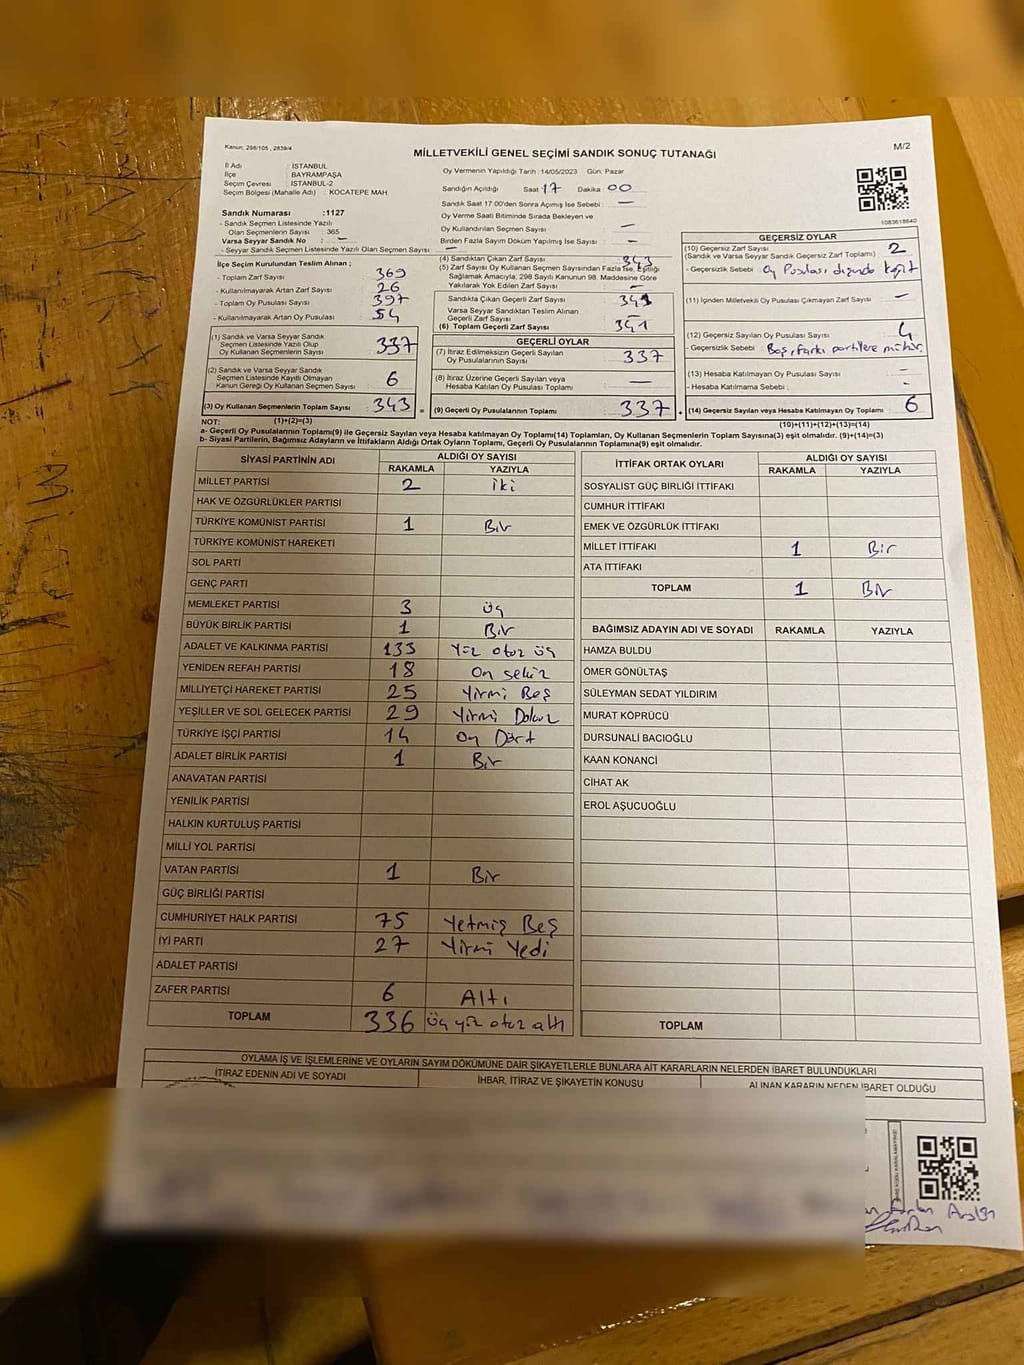 Kanun: 298/105 , 2839/4
MİLLETVEKİLİ GENEL SEÇİMİ SANDIK SONUÇ TUTANAĞI
M/2
İl Adı : İSTANBUL
İlçe : BAYRAMPAŞA
Seçim Çevresi : İSTANBUL-2
Seçim Bölgesi (Mahalle Adı) : KOCATEPE MAH.
Sandık Numarası :1127
- Sandık Seçmen Listesinde Yazılı
Olan Seçmenlerin Sayısı : 365
Varsa Seyyar Sandık No : —
- Seyyar Sandık Seçmen Listesinde Yazılı Olan Seçmen Sayısı: —
Oy Vermenin Yapıldığı Tarih : 14/05/2023 Gün: Pazar
Sandığın Açıldığı Saat 17 Dakika 00
Sandık Saat 17.00'den Sonra Açılmış İse Sebebi : —
Oy Verme Saati Bitiminde Sırada Bekleyen ve
Oy Kullandırılan Seçmen Sayısı : —
Birden Fazla Sayım Döküm Yapılmış İse Sayısı : —
1083618640
İlçe Seçim Kurulundan Teslim Alınan ;
- Toplam Zarf Sayısı : 369
- Kullanılmayarak Artan Zarf Sayısı : 26
- Toplam Oy Pusulası Sayısı : 397
- Kullanılmayarak Artan Oy Pusulası : 54
(1) Sandık ve Varsa Seyyar Sandık
Seçmen Listesinde Yazılı Olup
Oy Kullanan Seçmenlerin Sayısı : 337
(2) Sandık ve Varsa Seyyar Sandık
Seçmen Listesinde Kayıtlı Olmayan
Kanun Gereği Oy Kullanan Seçmen Sayısı : 6
(3) Oy Kullanan Seçmenlerin Toplam Sayısı : 343 =
(4) Sandıktan Çıkan Zarf Sayısı : 343
(5) Zarf Sayısı Oy Kullanan Seçmen Sayısından Fazla İse, Eşitliği
Sağlamak Amacıyla; 298 Sayılı Kanunun 98. Maddesine Göre
Yakılarak Yok Edilen Zarf Sayısı : —
Sandıkta Çıkan Geçerli Zarf Sayısı : 341
Varsa Seyyar Sandıktan Teslim Alınan
Geçerli Zarf Sayısı : —
(6) Toplam Geçerli Zarf Sayısı : 341
GEÇERLİ OYLAR
(7) İtiraz Edilmeksizin Geçerli Sayılan
Oy Pusulalarının Sayısı : 337
(8) İtiraz Üzerine Geçerli Sayılan veya
Hesaba Katılan Oy Pusulası Toplamı : —
(9) Geçerli Oy Pusulalarının Toplamı : 337 +
GEÇERSİZ OYLAR
(10) Geçersiz Zarf Sayısı : 2
(Sandık ve Varsa Seyyar Sandık Geçersiz Zarf Toplamı)
- Geçersizlik Sebebi : Oy Pusulası dışında kağıt
(11) İçinden Milletvekili Oy Pusulası Çıkmayan Zarf Sayısı : —
(12) Geçersiz Sayılan Oy Pusulası Sayısı : 4
- Geçersizlik Sebebi : Boş, farklı partilere mühür
(13) Hesaba Katılmayan Oy Pusulası Sayısı : —
- Hesaba Katılmama Sebebi : —
(14) Geçersiz Sayılan veya Hesaba Katılmayan Oy Toplamı : 6
NOT: (1)+(2)=(3)
(10)+(11)+(12)+(13)=(14)
a- Geçerli Oy Pusulalarının Toplamı(9) ile Geçersiz Sayılan veya Hesaba katılmayan Oy Toplamı(14) Toplamları, Oy Kullanan Seçmenlerin Toplam Sayısına(3) eşit olmalıdır. (9)+(14)=(3)
b- Siyasi Partilerin, Bağımsız Adayların ve İttifakların Aldığı Ortak Oyların Toplamı, Geçerli Oy Pusulalarının Toplamına(9) eşit olmalıdır.
SİYASİ PARTİNİN ADI ALDIĞI OY SAYISI
RAKAMLA YAZIYLA
MİLLET PARTİSİ 2 iki
HAK VE ÖZGÜRLÜKLER PARTİSİ
TÜRKİYE KOMÜNİST PARTİSİ 1 Bir
TÜRKİYE KOMÜNİST HAREKETİ
SOL PARTİ
GENÇ PARTİ
MEMLEKET PARTİSİ 3 üç
BÜYÜK BİRLİK PARTİSİ 1 Bir
ADALET VE KALKINMA PARTİSİ 133 Yüz otuz üç
YENİDEN REFAH PARTİSİ 18 On sekiz
MİLLİYETÇİ HAREKET PARTİSİ 25 Yirmi Beş
YEŞİLLER VE SOL GELECEK PARTİSİ 29 Yirmi Dokuz
TÜRKİYE İŞÇİ PARTİSİ 14 On Dört
ADALET BİRLİK PARTİSİ 1 Bir
ANAVATAN PARTİSİ
YENİLİK PARTİSİ
HALKIN KURTULUŞ PARTİSİ
MİLLİ YOL PARTİSİ
VATAN PARTİSİ 1 Bir
GÜÇ BİRLİĞİ PARTİSİ
CUMHURİYET HALK PARTİSİ 75 Yetmiş Beş
İYİ PARTİ 27 Yirmi Yedi
ADALET PARTİSİ
ZAFER PARTİSİ 6 Altı
TOPLAM 336 üç yüz otuz altı
İTTİFAK ORTAK OYLARI ALDIĞI OY SAYISI
RAKAMLA YAZIYLA
SOSYALİST GÜÇ BİRLİĞİ İTTİFAKI
CUMHUR İTTİFAKI
EMEK VE ÖZGÜRLÜK İTTİFAKI
MİLLET İTTİFAKI 1 Bir
ATA İTTİFAKI
TOPLAM 1 Bir
BAĞIMSIZ ADAYIN ADI VE SOYADI RAKAMLA YAZIYLA
HAMZA BULDU
ÖMER GÖNÜLTAŞ
SÜLEYMAN SEDAT YILDIRIM
MURAT KÖPRÜCÜ
DURSUNALİ BACIOĞLU
KAAN KONANCİ
CİHAT AK
EROL AŞUCUOĞLU
TOPLAM
OYLAMA İŞ VE İŞLEMLERİNE VE OYLARIN SAYIM DÖKÜMÜNE DAİR ŞİKAYETLERLE BUNLARA AİT KARARLARIN NELERDEN İBARET BULUNDUKLARI
İTİRAZ EDENİN ADI VE SOYADI İHBAR, İTİRAZ VE ŞİKAYETİN KONUSU ALINAN KARARIN NEDEN İBARET OLDUĞU
Arslan